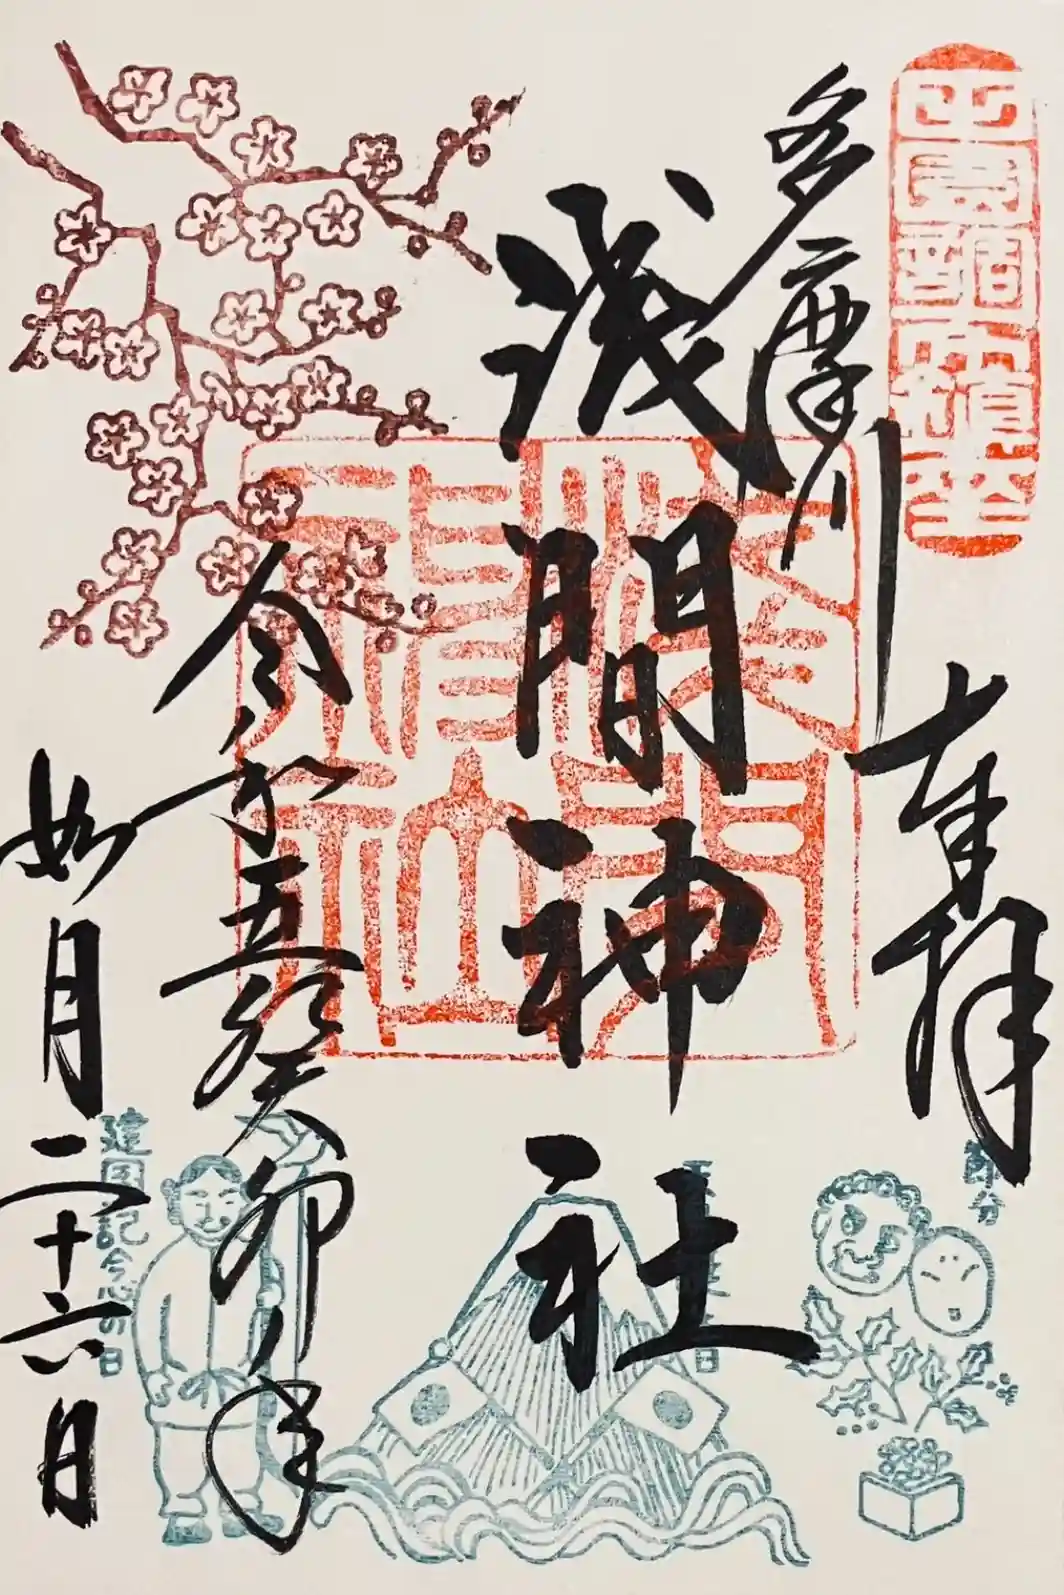 田園調布鎮座
奉拝
多摩川
浅間神社
令和五癸卯年
如月二十六日
淺間神社
節分
建国記念の日